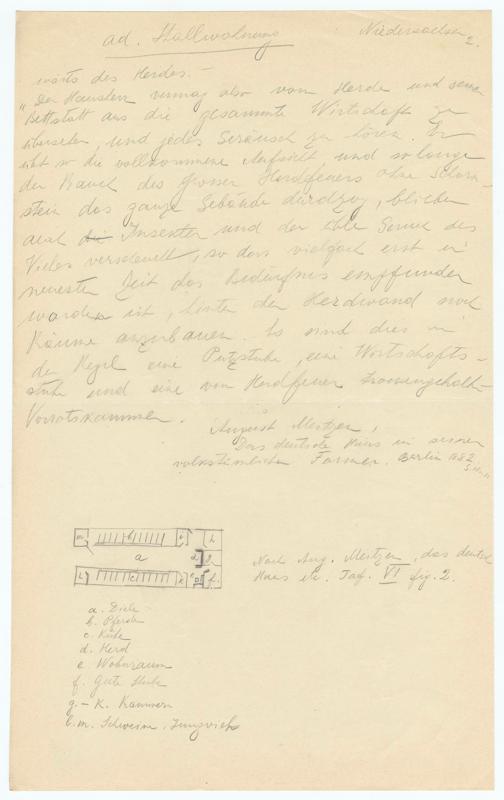 ad. Stallwohnung
Niedersachsen 2.
wärts des Herdes. —
"Der Hausherr vermag also vom Herde und seiner
Bettstatt aus die gesammte Wirtschaft zu
übersehen, und jedes Geräusch zu hören. Er
übt so die vollkommene Aufsicht, und so lange
der Rauch des grossen Herdfeuers ohne Schorn-
stein das ganze Gebäude durchzog, blieben
auch die Insekten und der üble Geruch des
Viehes verscheucht, so dass vielfach erst in
neuester Zeit das Bedürfnis empfunden
worden ist, hinter der Herdwand noch
Räume anzubauen. Es sind dies in
der Regel eine Putzstube, eine Wirtschafts-
stube und eine vom Herdfeuer
Vorratskammer.
August Meitzen,
Das deutsche Haus in seinen
volkstümlichen Formen. Berlin 1882
m b i h
a d g
l c k e f
Nach Aug. Meitzen, das deutsche
Haus etc. Taf. VI fig. 2.
a. Diele
b. Pferde
c. Kühe
d. Herd
e. Wohnraum
f. Gute Stube
g. – k. Kammern
l. m. Schweine, Jungvieh